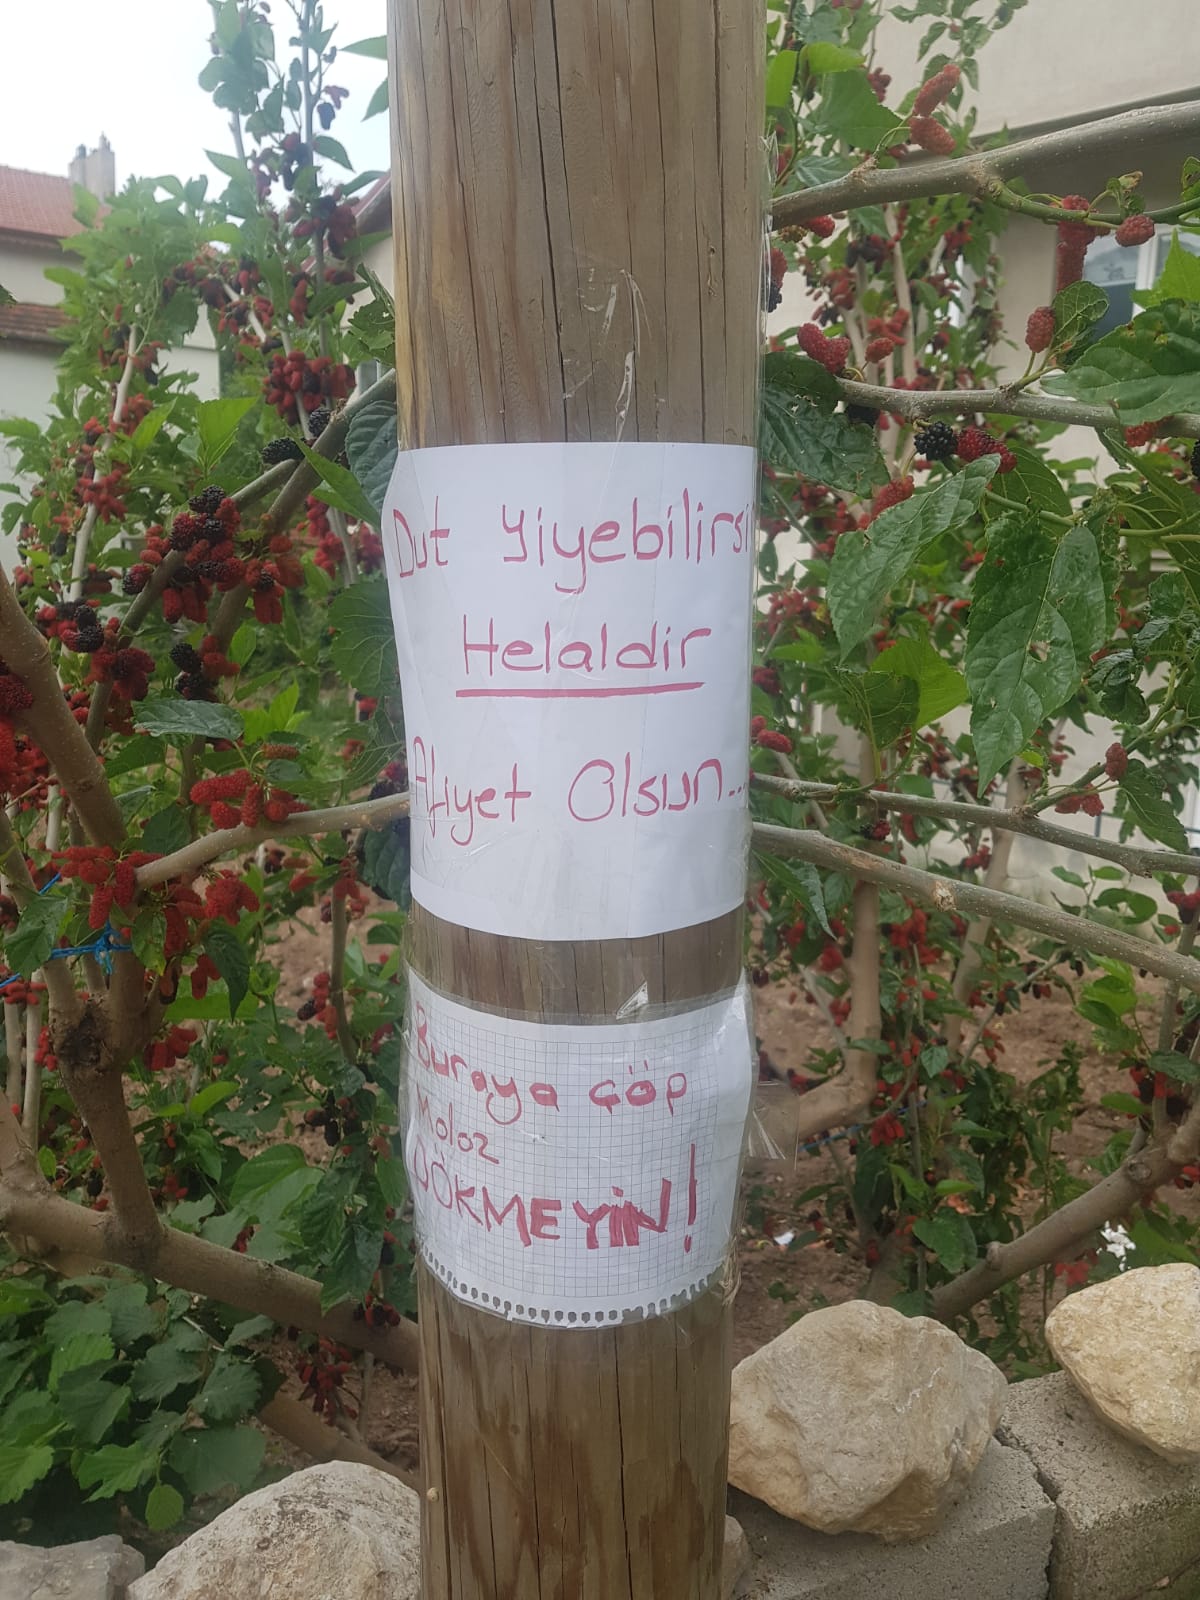 Dut yiyebilirsi
Helaldir
Afiyet Olsun...
Buraya çöp
Moloz
DÖKMEYİN!